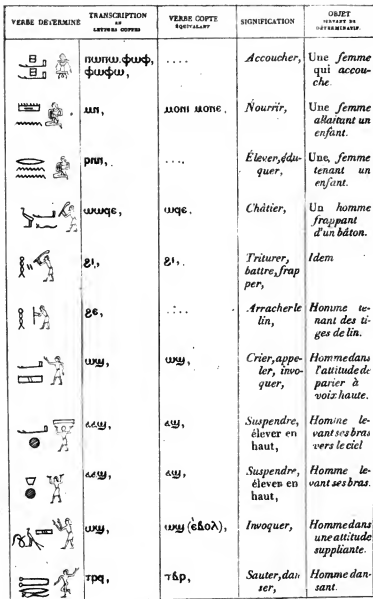 VERBE DÉTERMINÉ
TRANSCRIPTION
EN
LETTRES COPTES
VERBE COPTE
ÉQUIVALANT
SIGNIFICATION
OBJET
SERVANT DE
DÉTERMINATIF.
ⲡⲱⲡⲱ, ⲫⲱⲫ,
ⲫⲱⲫⲱ,
....
Accoucher,
Une femme
qui accou-
che.
ⲙⲛ,
ⲙⲟⲛⲓ ⲙⲟⲛⲉ.
Nourrir,
Une femme
allaitant un
enfant.
ⲣⲛⲛ,
....
Élever, édu-
quer,
Une, femme
tenant un
enfant.
ⲱⲱϥⲉ,
ⲱϥⲉ.
Châtier,
Un homme
frappant
d'un bâton.
ϩⲓ,
ϩⲓ,
Triturer,
battre, frap
per,
Idem
ϩⲉ,
....
Arracher le
lin,
Homme te-
nant des ti-
ges de lin.
ⲱϣ,
ⲱϣ,
Crier, appe-
ler, invo-
quer,
Homme dans
l'attitude de
parler à
voix haute.
ⲁⲁϣ,
ⲁϣ,
Suspendre,
élever en
haut,
Homme le-
vant ses bras
vers le ciel
ⲁⲁϣ,
ⲁϣ,
Suspendre,
élever en
haut,
Homme le-
vant ses bras.
ⲱϣ,
ⲱϣ (ⲉⲃⲟⲗ),
Invoquer,
Homme dans
une attitude
suppliante.
ⲧⲣϥ,
ⲧⲃⲣ,
Sauter, dan
ser,
Homme dan-
sant.